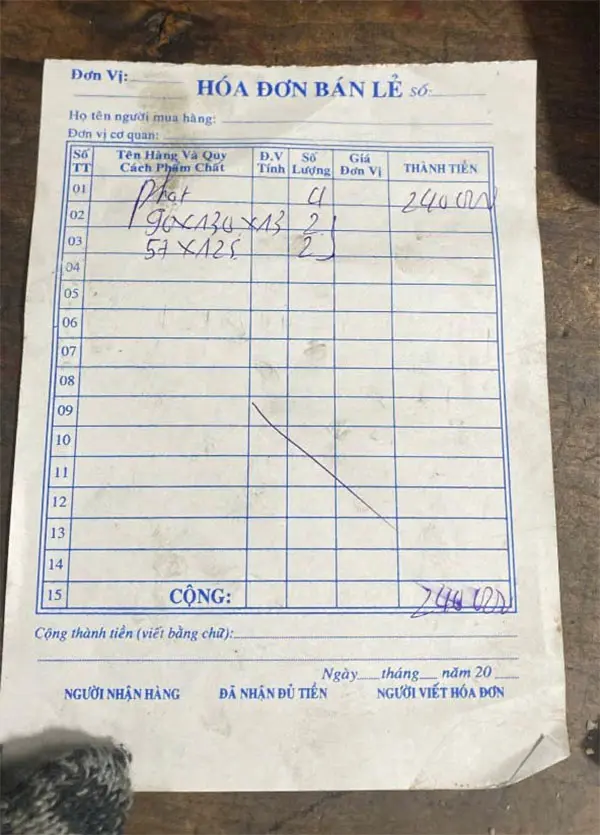 Đơn Vị:
HÓA ĐƠN BÁN LẺ Số:
Họ tên người mua hàng:
Đơn vị cơ quan:
Số TT Tên Hàng Và Quy Cách Phẩm Chất Đ.V Tính Số Lượng Giá Đơn Vị THÀNH TIỀN
01 phớt 4
02 90x130x13 2
03 57x125 2
04
05
06
07
08
09
10
11
12
13
14
15 CỘNG:
Cộng thành tiền (viết bằng chữ):
Ngày tháng năm 20
NGƯỜI NHẬN HÀNG ĐÃ NHẬN ĐỦ TIỀN NGƯỜI VIẾT HÓA ĐƠN